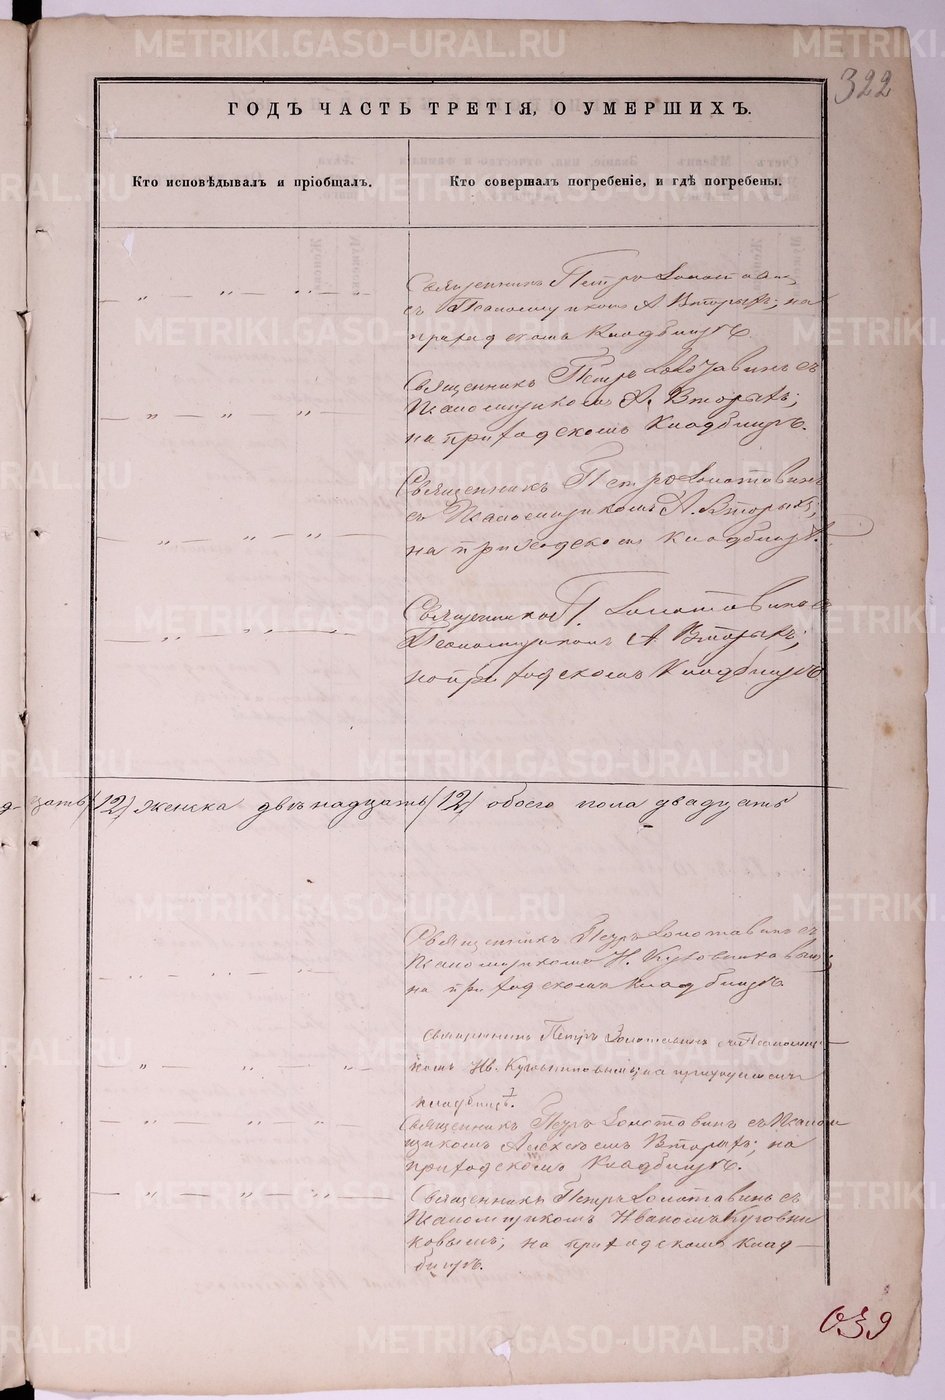 METRIKI.GASO-URAL.RU
322
ГОДЪ ЧАСТЬ ТРЕТІЯ, О УМЕРШИХЪ.
Кто исповѣдывалъ и пріобщалъ.
Кто совершалъ погребеніе, и гдѣ погребены.
Священникъ Петръ Золотавин
съ Псаломщикомъ А Вторыхъ; на
приходскомъ Кладбищѣ.
Священникъ Петръ Золотавинъ съ
Псаломщикомъ А. Вторыхъ;
на приходскомъ Кладбищѣ.
Священникъ Петръ Золотавинъ
съ Псаломщикомъ А. Вторыхъ;
на приходскомъ кладбищѣ.
Священникъ П. Золотавинъ съ
Псаломщикомъ А Вторыхъ;
на приходскомъ Кладбищѣ
дцать (12) женска двѣнадцать (12) обоего пола двадцать
Священникъ Петръ Золотавинъ съ
Псаломщикомъ И.
на приходскомъ кладбищѣ
Священникъ Петръ Золотавинъ съ Псаломщи-
комъ Ив. на приходскомъ
кладбищѣ.
Священникъ Петръ Золотавинъ съ Псалом
щикомъ Алексѣемъ Вторыхъ; на
приходскомъ Кладбищѣ.
Священникъ Петръ Золотавинъ съ
Псаломщикомъ Иваномъ
ковымъ; на приходскомъ клад-
бищѣ.
039